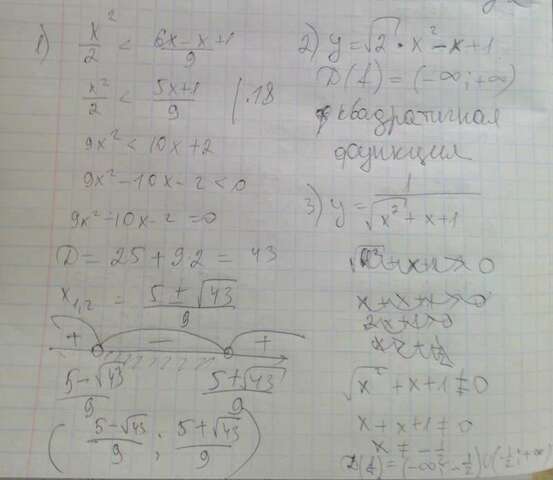 1) x²/2 < 6x-x+1/9
x²/2 < 5x+1/9 |·18
9x² < 10x+2
9x²-10x-2<0
9x²-10x-2=0
D=25+9·2=43
x₁,₂ = 5±√43/9
+ - +
5-√43/9 5+√43/9
(5-√43/9; 5+√43/9)
2) y=√2·x²-x+1
D(f)=(-∞;+∞)
квадратичная
функция
3) y=1/√x²+x+1
x+x+1>0
2x+1>0
√x²+x+1≠0
x+x+1≠0
x≠-1/2
D(f)=(-∞;-1/2)∪(-1/2;+∞)